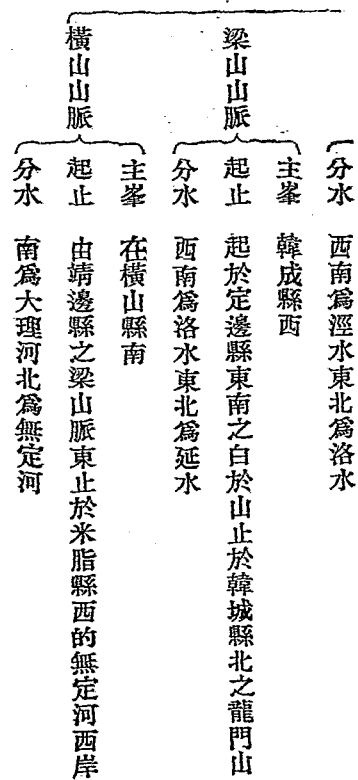 分水　西南爲涇水東北爲洛水
梁山山脈
主峯　韓成縣西
起止　起於定邊縣東南之白於山止於韓城縣北之龍門山
分水　西南爲洛水東北爲延水
橫山山脈
主峯　在橫山縣南
起止　由靖邊縣之梁山脈東止於米脂縣西的無定河西岸
分水　南爲大理河北爲無定河